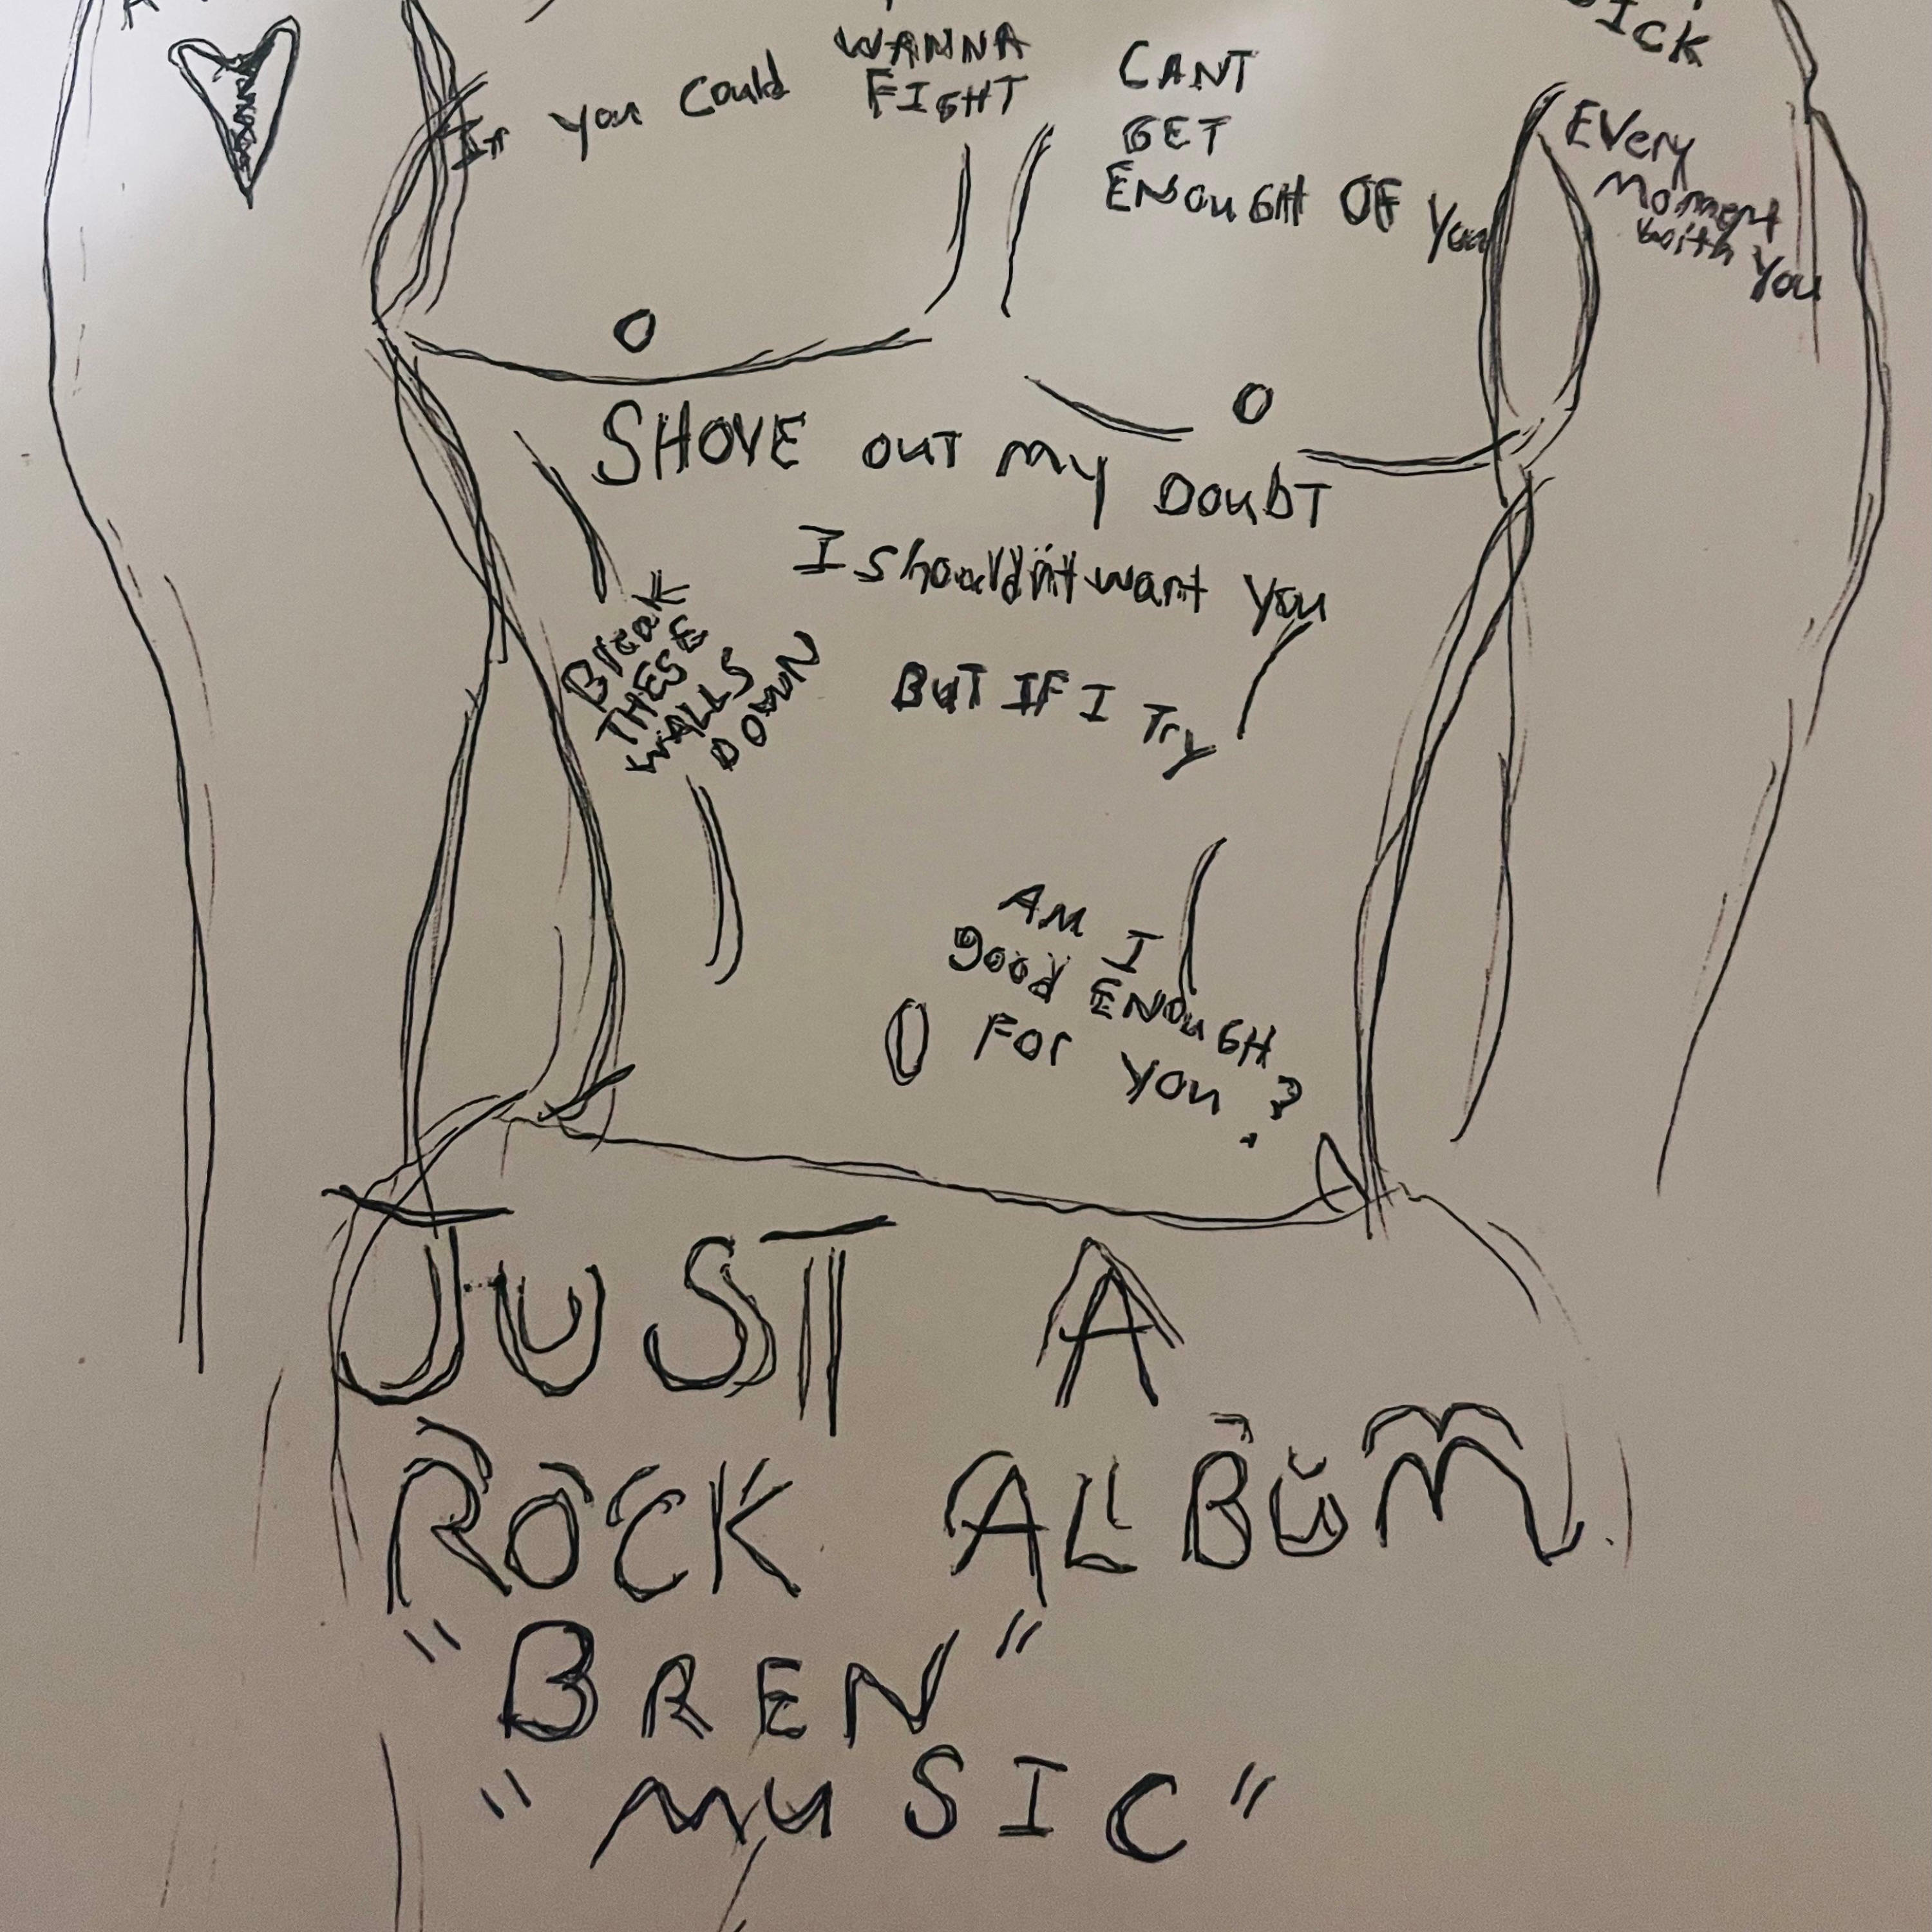 ICK
WANNA
FIGHT
If you Could
CANT
GET
ENOUGH OF You
EVery
Moment
with You
SHOVE OUT my DOUBT
I shouldn't want you
Break
THESE
WALLS
DOWN
BUT IF I Try
AM I
good ENOUGH
FOr you?
JUST A
ROCK ALBUM
"BREN"
"MUSIC"